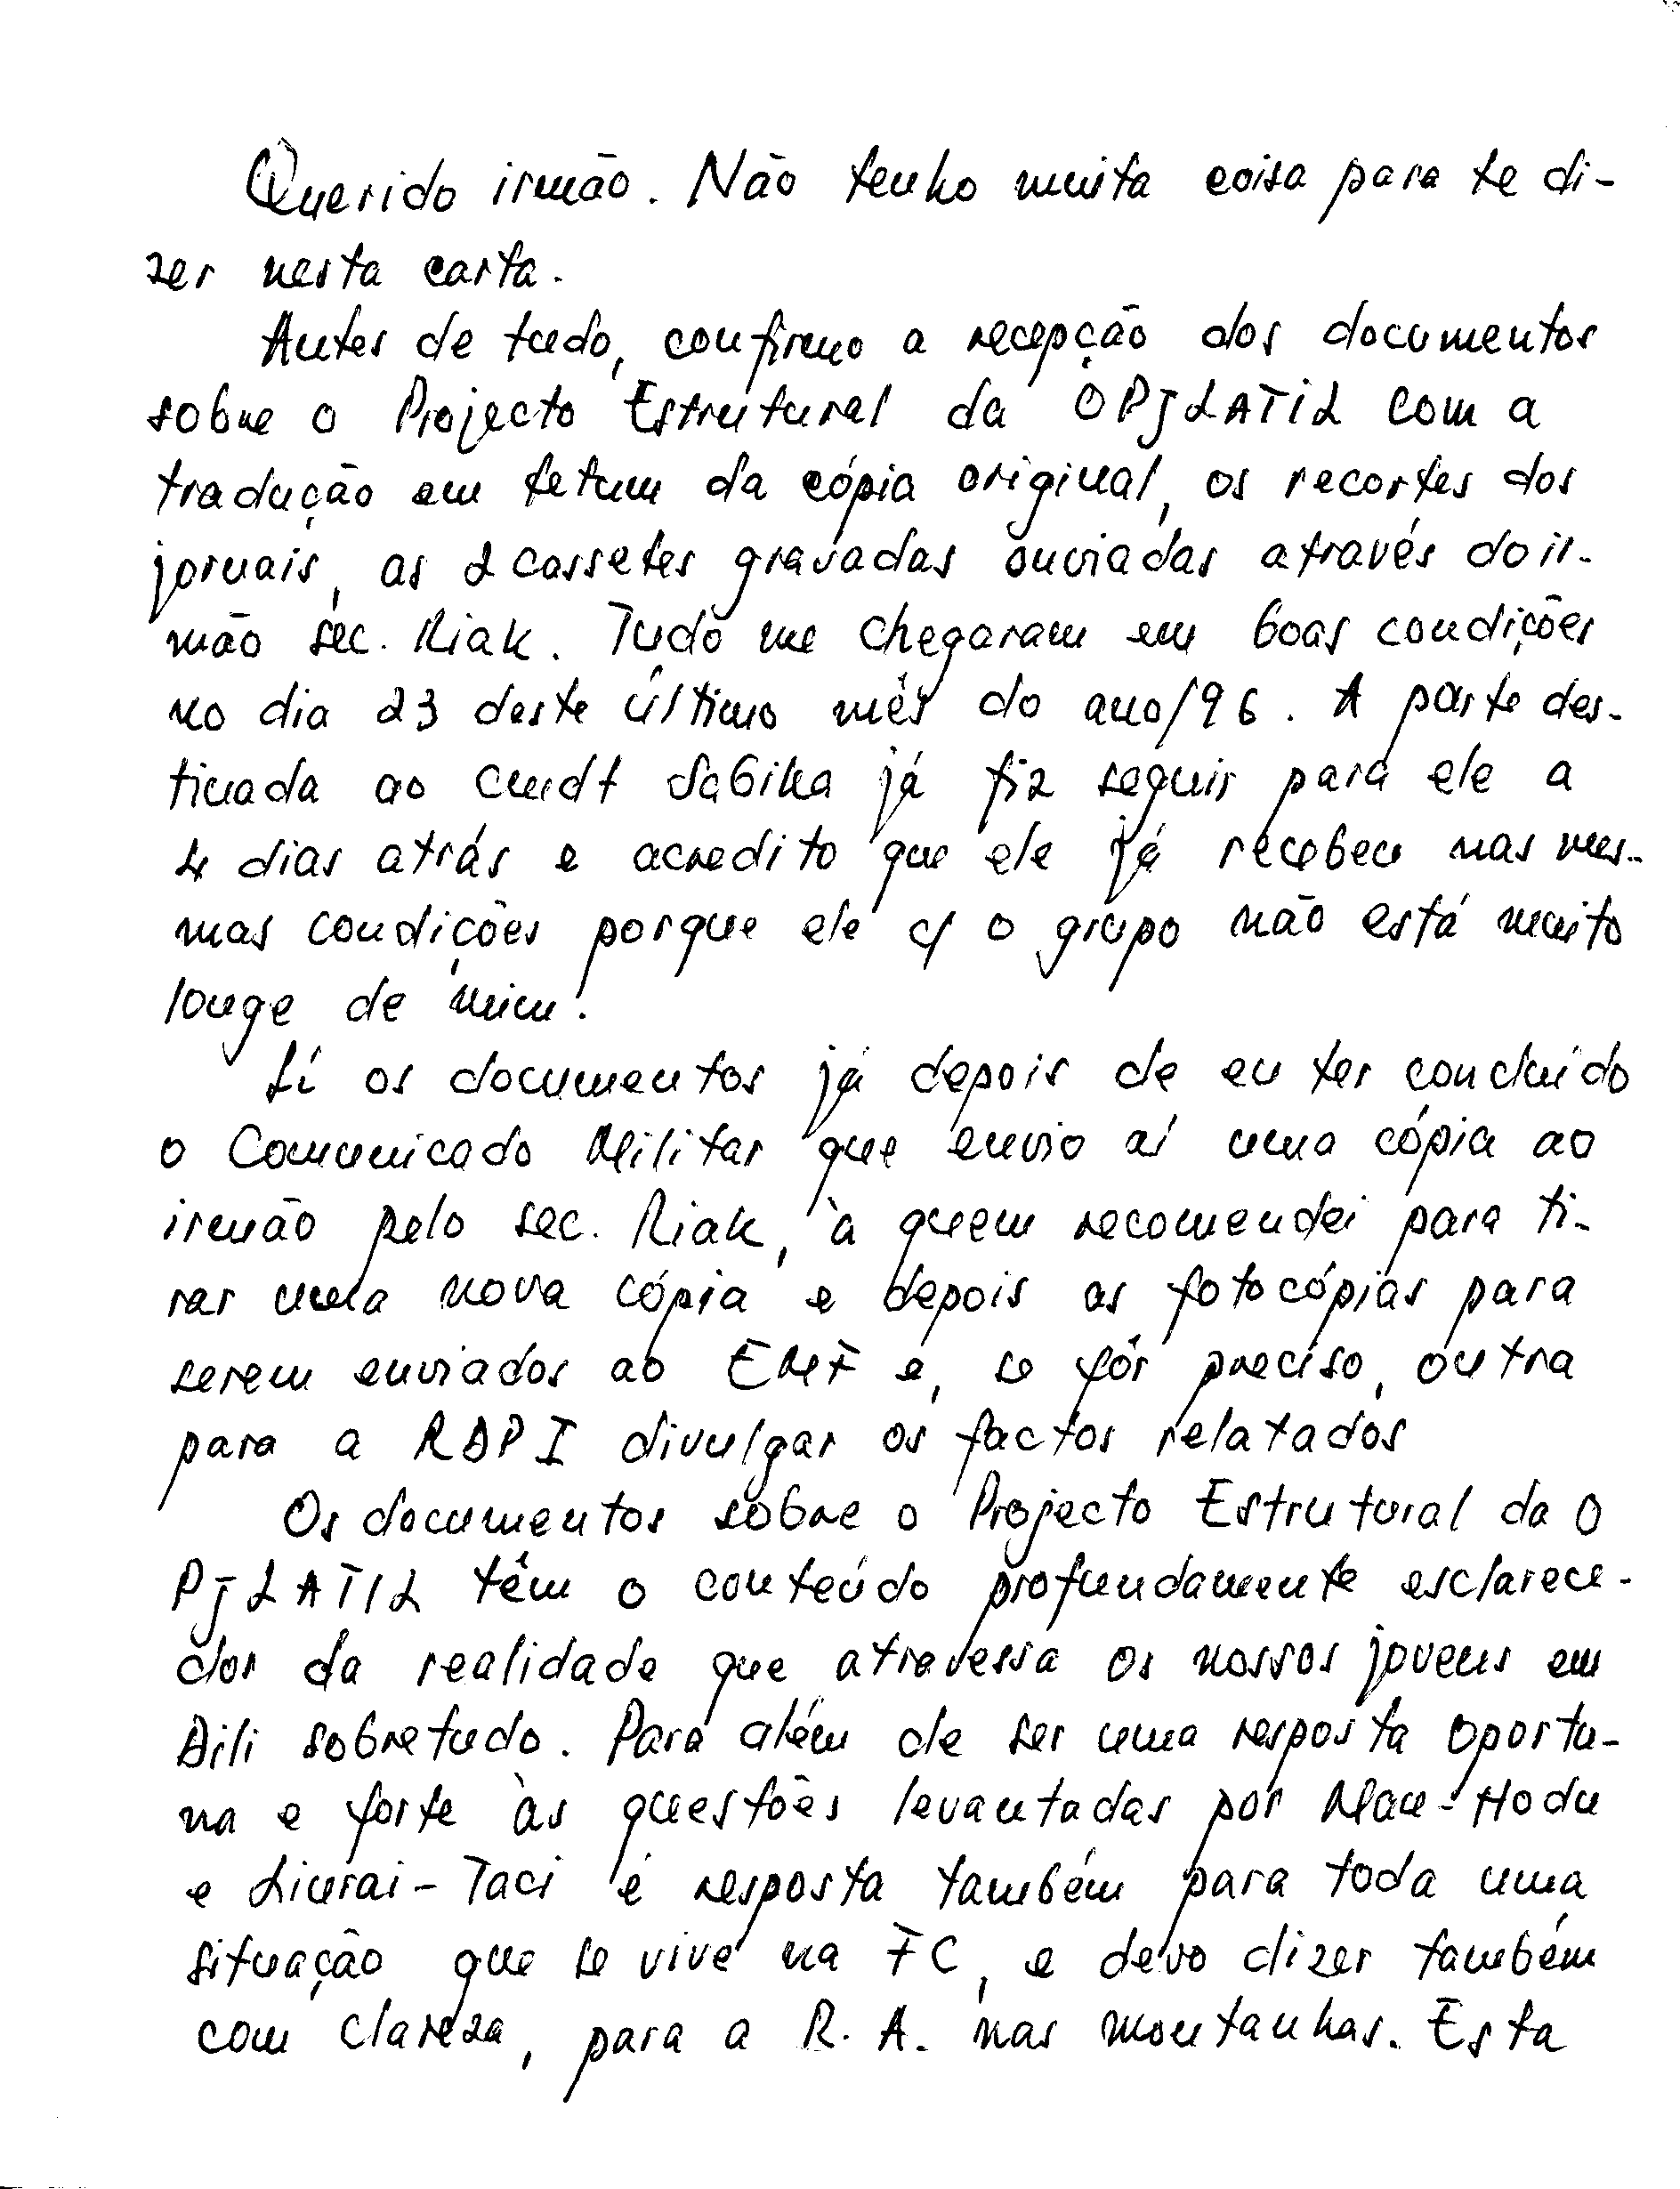 Querido irmão. Não tenho muita coisa para te di-
zer nesta carta.
Antes de tudo, confirmo a recepção dos documentos
sobre o Projecto Estrutural da OPJLATIL com a
tradução em tetum da cópia original, os recortes dos
jornais, as 2 cassetes gravadas enviadas através do ir-
mão sec. Riak. Tudo me chegaram em boas condições
no dia 23 deste último mês do ano/96. A parte des-
tinada ao Cmdt Sabika já fiz seguir para ele a
4 dias atrás e acredito que ele já recebeu nas mes-
mas condições porque ele c/ o grupo não está muito
longe de mim.
Lí os documentos já depois de eu ter concluído
o Comunicado Militar que envio aí uma cópia ao
irmão pelo sec. Riak, à quem recomendei para ti-
rar uma nova cópia e depois as fotocópias para
serem enviados ao EMF e, se fôr preciso, outra
para a RDPI divulgar os factos relatados
Os documentos sobre o Projecto Estrutural da O
PJLATIL têm o conteúdo profundamente esclarece-
dor da realidade que atravessa os nossos jovens em
Dili sobretudo. Para além de ser uma resposta oportu-
na e forte às questões levantadas por Mau-Hodu
e Liurai-Taci é resposta também para toda uma
situação que se vive na FC, e devo dizer também
com clareza, para a R. A. nas montanhas. Esta